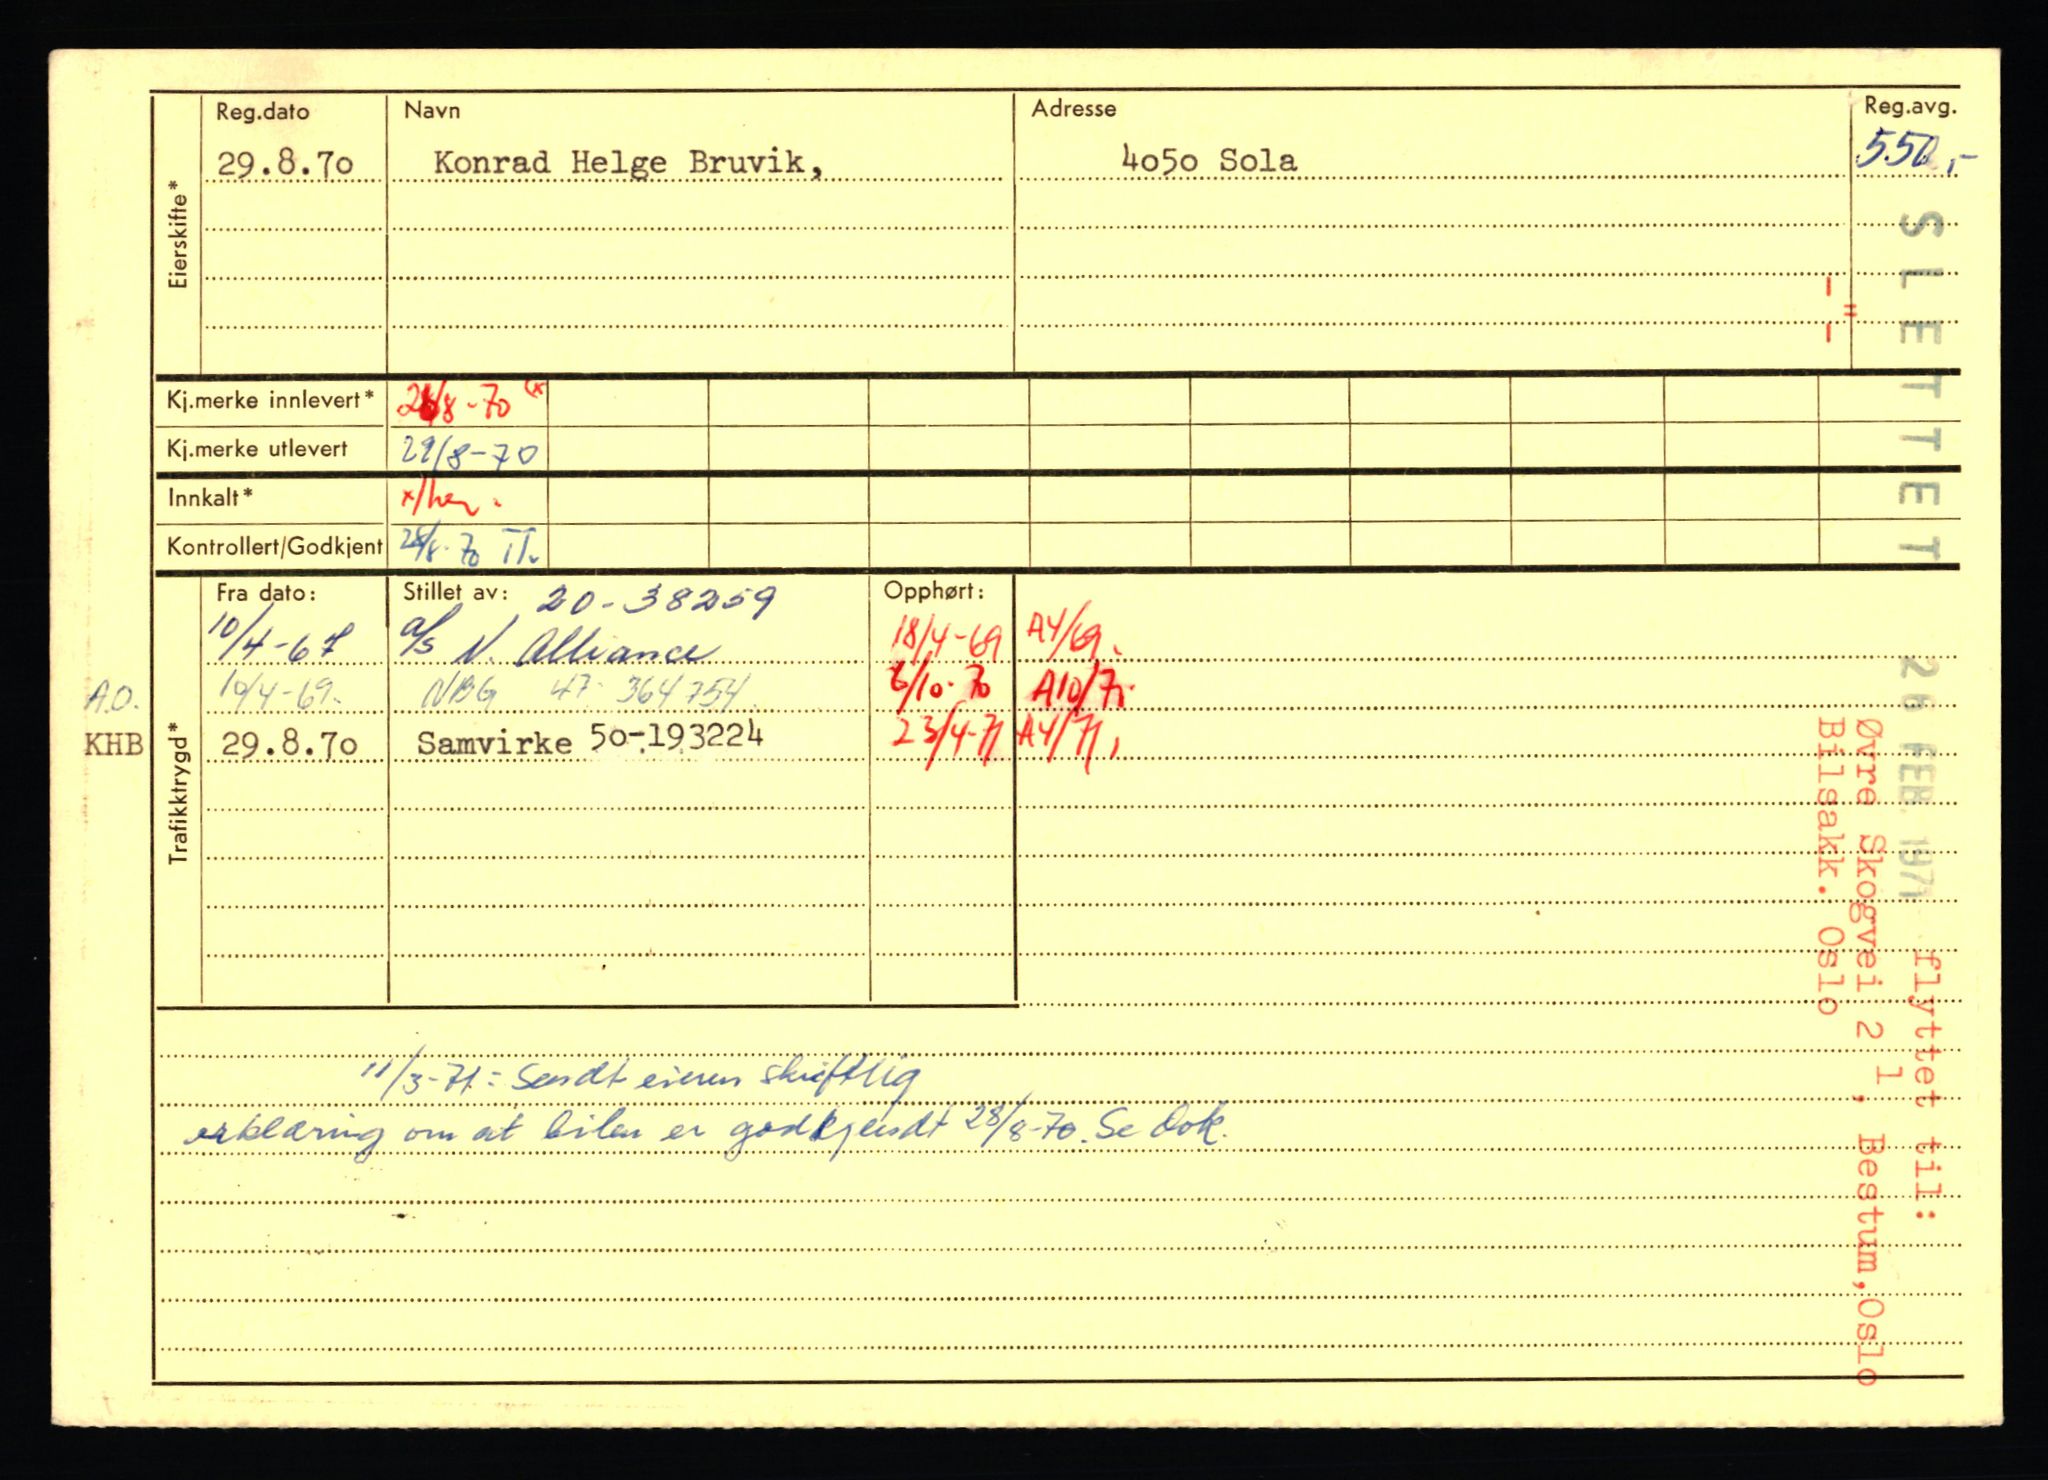 Reg.dato Navn Adresse Reg.avg.
29.8.70 Konrad Helge Bruvik, 4050 Sola 550,-
Eierskifte*
SLETTET
26 FEB. 1971
Kj.merke innlevert* /8-70
Kj.merke utlevert 29/8-70
Innkalt* x/her.
Kontrollert/Godkjent 28/8-70
Trafikktrygd*
Fra dato: Stillet av: 20-38259 Opphørt:
10/4-67 a/s N. Alliance 18/4-69 A4/69.
A.O. 10/4-69. NBG 47-364754. 6/10-70 A10/70
KHB 29.8.70 Samvirke 50-193224 23/4-71 A4/71,
flyttet til:
Øvre Skogvei 2 l, Bestum,Oslo
Bilsakk. Oslo
11/3-71 = Sendt eieren skriftlig
erklæring om at bilen er godkjendt 28/8-70. Se Dok.